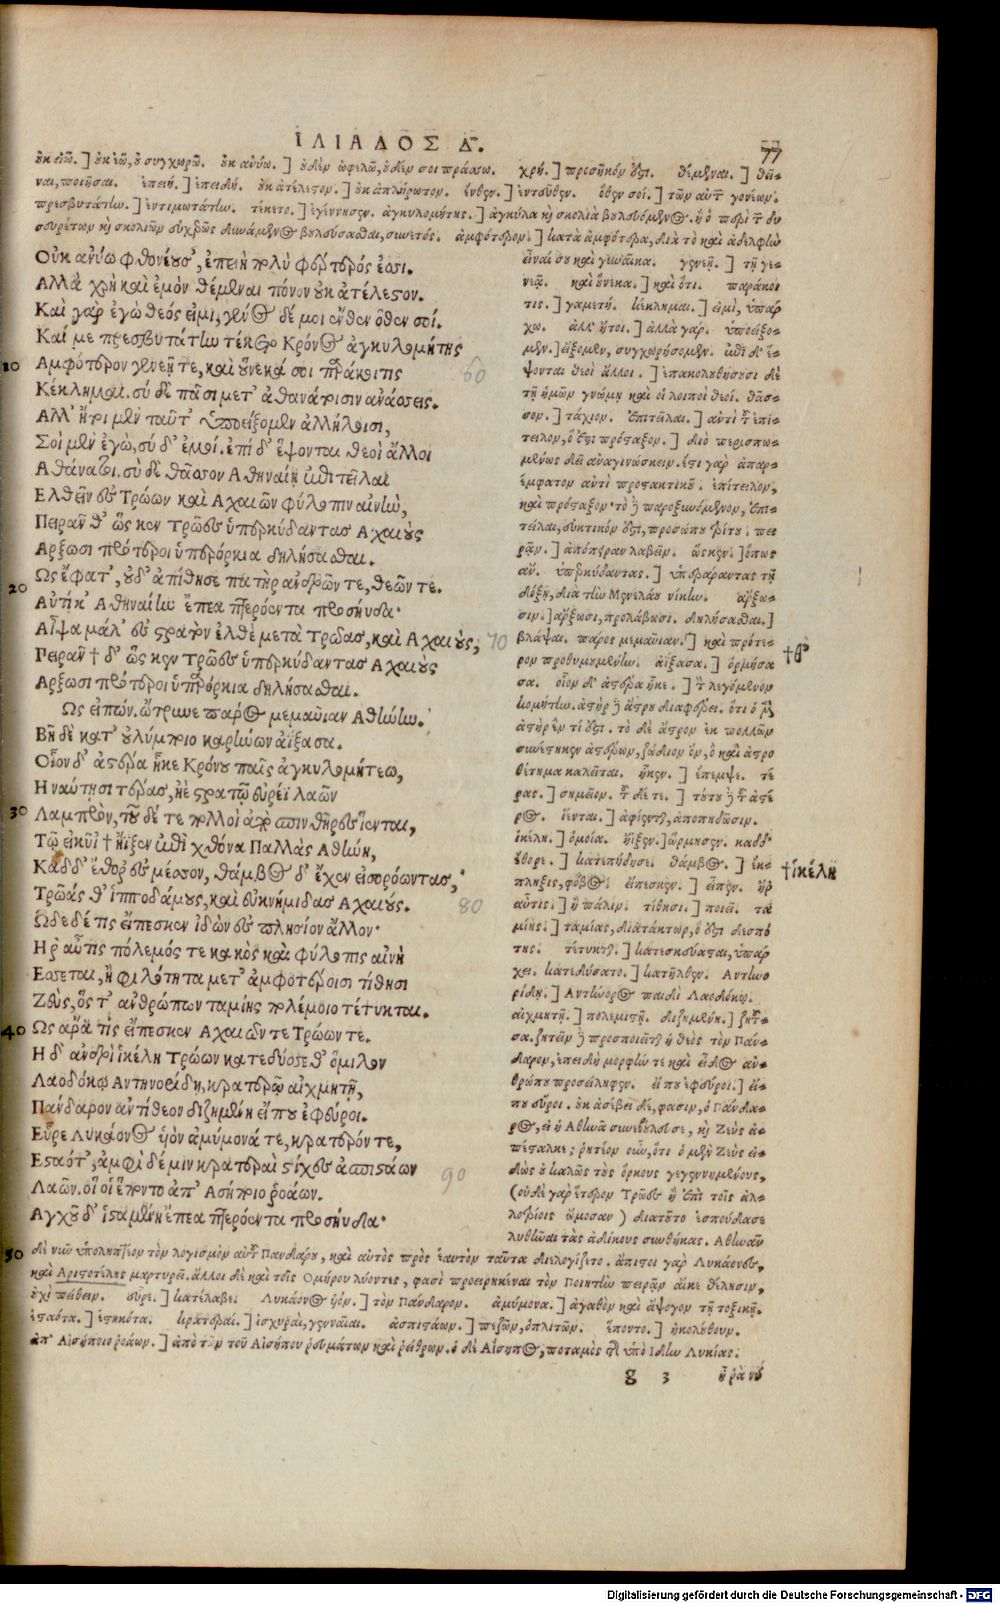 ΙΛΙΑΔΟΣ Δ. 77
οὐκ ἐῶ.] οὐκ ἐῶ, οὐ συγχωρῶ. οὐκ ἀνύω.] οὐδὲν ὠφελῶ, οὐδέν σοι πράσσω. χρή.] προσῆκόν ἐστι. θέμεναι.] θεῖ-
ναι, ποιῆσαι. ἐπειή.] ἐπειδή. οὐκ ἀτέλεστον.] οὐκ ἀπλήρωτον. ἔνθεν.] ἐντεῦθεν. ὅθεν σοί.] τῶν αὐτῶν γονέων.
πρεσβυτάτην.] ἐντιμωτάτην. τέκετο.] ἐγέννησεν. ἀγκυλομήτης.] ἀγκύλα καὶ σκολιὰ βουλευόμενος. ἢ ὁ περὶ τῶν δυ
σευρέτων καὶ σκολιῶν εὐχερῶς δυνάμενος βουλεύσασθαι, συνετός. ἀμφότερον.] κατὰ ἀμφότερα, διὰ τὸ καὶ ἀδελφὴν
Οὐκ ἀνύω φθονέουσ', ἐπειὴ πολὺ φέρτερός ἐσσι.
Ἀλλὰ χρὴ καὶ ἐμὸν θέμεναι πόνον οὐκ ἀτέλεστον.
Καὶ γὰρ ἐγὼ θεός εἰμι, γένος δέ μοι ἔνθεν ὅθεν σοί.
Καί με πρεσβυτάτην τέκετο Κρόνος ἀγκυλομήτης
10 Ἀμφότερον γενεῇ τε, καὶ οὕνεκα σοὶ παράκοιτις 60
Κέκλημαι. σὺ δὲ πᾶσι μετ' ἀθανάτοισιν ἀνάσσεις.
Ἀλλ' ἤτοι μὲν ταῦτ' ὑποείξομεν ἀλλήλοισι,
Σοὶ μὲν ἐγὼ, σὺ δ' ἐμοί. ἐπὶ δ' ἕψονται θεοὶ ἄλλοι
Ἀθάνατοι. σὺ δὲ θᾶσσον Ἀθηναίῃ ἐπιτεῖλαι
Ἐλθεῖν ἐς Τρώων καὶ Ἀχαιῶν φύλοπιν αἰνὴν,
Πειρᾶν θ' ὥς κεν Τρῶες ὑπερκύδαντας Ἀχαιοὺς
Ἄρξωσι πρότεροι ὑπὲρ ὅρκια δηλήσασθαι.
20 Ὣς ἔφατ', οὐδ' ἀπίθησε πατὴρ ἀνδρῶν τε, θεῶν τε.
Αὐτίκ' Ἀθηναίην ἔπεα πτερόεντα προσηύδα·
Αἶψα μάλ' ἐς στρατὸν ἐλθὲ μετὰ Τρῶας, καὶ Ἀχαιοὺς, 70
Πειρᾶν † δ' ὥς κεν Τρῶες ὑπερκύδαντας Ἀχαιοὺς
Ἄρξωσι πρότεροι ὑπὲρ ὅρκια δηλήσασθαι.
Ὣς εἰπὼν. ὤτρυνε πάρος μεμαυῖαν Ἀθήνην.
Βῆ δὲ κατ' οὐλύμποιο καρήνων ἀΐξασα.
Οἷον δ' ἀστέρα ἧκε Κρόνου παῖς ἀγκυλομήτεω,
Ἢ ναύτῃσι τέρας, ἠὲ στρατῷ εὐρέϊ λαῶν
30 Λαμπρὸν, τοῦ δέ τε πολλοὶ ἀπὸ σπινθῆρες ἵενται,
Τῷ εἰκυῖ' † ἤϊξεν ἐπὶ χθόνα Παλλὰς Ἀθήνη,
Κὰδ δ' ἔθορ' ἐς μέσσον, θάμβος δ' ἔχεν εἰσορόωντας,
Τρῶάς θ' ἱπποδάμους, καὶ ἐϋκνήμιδας Ἀχαιούς. 80
Ὧδε δέ τις εἴπεσκεν ἰδὼν ἐς πλησίον ἄλλον·
Ἦ ῥ' αὖτις πόλεμός τε κακὸς καὶ φύλοπις αἰνὴ
Ἔσσεται, ἢ φιλότητα μετ' ἀμφοτέροισι τίθησι
Ζεὺς, ὅς τ' ἀνθρώπων ταμίης πολέμοιο τέτυκται.
40 Ὣς ἄρα τὶς εἴπεσκεν Ἀχαιῶν τε Τρώων τε.
Ἡ δ' ἀνδρὶ ἰκέλη Τρώων κατεδύσεθ' ὅμιλον
Λαοδόκῳ Ἀντηνορίδῃ, κρατερῷ αἰχμητῇ,
Πάνδαρον ἀντίθεον διζημένη εἴ που ἐφεύροι.
Εὗρε Λυκάονος υἱὸν ἀμύμονά τε, κρατερόν τε,
Ἑσταότ'· ἀμφὶ δέ μιν κρατεραὶ στίχες ἀσπιστάων 90
Λαῶν. οἵ οἱ ἕποντο ἀπ' Αἰσήποιο ῥοάων.
Ἀγχοῦ δ' ἱσταμένη ἔπεα πτερόεντα προσηύδα·
εἶναί σου καὶ γυναῖκα. γενεῇ.] τῇ γε-
νεᾷ. καὶ οὕνεκα.] καὶ ὅτι. παράκοι
τις.] γαμετή. κέκλημαι.] εἰμὶ, ὑπάρ
χω. ἀλλ' ἤτοι.] ἀλλὰ γάρ. ὑποείξο-
μεν.] εἴξομεν, συγχωρήσομεν. ἐπὶ δ' ἕ-
ψονται θεοὶ ἄλλοι.] ἐπακολουθήσουσι δὲ
τῇ ἡμῶν γνώμῃ καὶ οἱ λοιποὶ θεοί. θᾶσ-
σον.] τάχιον. ἐπιτεῖλαι.] ἀντὶ τοῦ ἐπί-
τειλον, ὅ ἐστι πρόσταξον.] διὸ περισπω-
μένως δεῖ ἀναγινώσκειν. ἔστι γὰρ ἀπαρ-
έμφατον ἀντὶ προστακτικοῦ. ἐπίτειλον,
καὶ πρόσταξον· τὸ δὲ παροξυνόμενον, ἐπι-
τείλαι, εὐκτικόν ἐστι, προσώπου τρίτου. πει
ρᾶν.] ἀπόπειραν λαβεῖν. ὥς κεν.] ὅπως
ἄν. ὑπερκύδαντας.] ὑπεράραντας τῇ
δόξῃ, διὰ τὴν Μενελάου νίκην. ἄρξω-
σιν.] ἄρξωσι, προλάβωσι. δηλήσασθαι.]
βλάψαι. πάρος μεμαυῖαν.] καὶ πρότε- †θ'
ρον προθυμουμένην. ἀΐξασα.] ὁρμήσα
σα. οἷον δ' ἀστέρα ἧκε.] τὸν λεγόμενον
κομήτην. ἀστὴρ δὲ ἄστρου διαφέρει. ὅτι ὁ μὲν
ἀστὴρ ἕν τί ἐστι. τὸ δὲ ἄστρον ἐκ πολλῶν
συνέστηκεν ἀστέρων, ζώδιον ὂν, ὃ καὶ ἀστρο
θέτημα καλεῖται. ἧκεν.] ἔπεμψε. τέ
ρας.] σημεῖον. τοῦ δέ τε.] τούτου δὲ τοῦ ἀστέ
ρος. ἵενται.] ἀφίενται, ἀποπηδῶσιν.
ἰκέλη.] ὁμοία. ἤϊξεν.] ὥρμησεν. καδδ'
ἔθορε.] κατεπήδησε. θάμβος.] ἔκ- †ἰκέλη
πληξις, φόβος. εἴπεσκεν.] εἶπεν. ἦρ'
αὖτις.] ἢ πάλιν. τίθησι.] ποιεῖ. τα
μίης.] ταμίας, διατάκτωρ, ὅ ἐστι δεσπό
της. τέτυκται.] κατεσκεύασται, ὑπάρ
χει. κατεδύσατο.] κατῆλθεν. Ἀντηνο
ρίδῃ.] Ἀντήνορος παιδὶ Λαοδόκῳ.
αἰχμητῇ.] πολεμιστῇ. διζημένη.] ζητοῦ-
σα. ζητεῖν δὲ προσποιεῖται ἡ θεὸς τὸν Πάν-
δαρον, ἐπειδὴ μορφήν τε καὶ εἶδος ἀν-
θρώπου προσείληφεν. εἴ που ἐφεύροι.] εἴ-
που εὕροι. οὐκ ἀσεβεῖ δέ, φασιν, ὁ Πάνδα-
ρος, εἰ ἡ Ἀθηνᾶ συνεβούλευσε, καὶ Ζεὺς ἀ-
πέσταλκε; ῥητέον οὖν, ὅτι ὁ μὲν Ζεὺς εἰ-
δὼς οὐ καλῶς τοὺς ὅρκους γεγενημένους,
(οὐδὲ γὰρ ἕτερον Τρῶες ἢ ἐπὶ τοῖς ἀλ-
λοτρίοις ὤμοσαν) διὰ τοῦτο ἐσπούδασε
λυθῆναι τὰς ἀδίκους συνθήκας. Ἀθηνᾶν
50 δὲ νῦν ὑποληπτέον τὸν λογισμὸν αὐτοῦ Πανδάρου, καὶ αὐτὸς πρὸς ἑαυτὸν ταῦτα διελογίζετο. ἄπιστοι γὰρ Λυκάονες,
καὶ Ἀριστοτέλης μαρτυρεῖ. ἄλλοι δὲ καὶ τοῖς Ὁμήρου λύοντες, φασὶ προειρηκέναι τὸν Ποιητὴν πειρᾶν αἴκε θέλησιν,
οὐχὶ πείθειν. εὗρε.] κατέλαβε. Λυκάονος υἱόν.] τὸν Πάνδαρον. ἀμύμονα.] ἀγαθὸν καὶ ἄψογον τῇ τοξικῇ.
ἑσταότα.] ἑστηκότα. κρατεραί.] ἰσχυραὶ, γενναῖαι. ἀσπιστάων.] πεζῶν, ὁπλιτῶν. ἕποντο.] ἠκολούθουν.
ἀπ' Αἰσήποιο ῥοάων.] ἀπὸ τῶν τοῦ Αἰσήπου ῥευμάτων καὶ ῥείθρων. ὁ δὲ Αἴσηπος, ποταμὸς τῆς ὑπὸ Ἴδην Λυκίας.
g 3 ἦ ῥά νύ
Digitalisierung gefördert durch die Deutsche Forschungsgemeinschaft - DFG